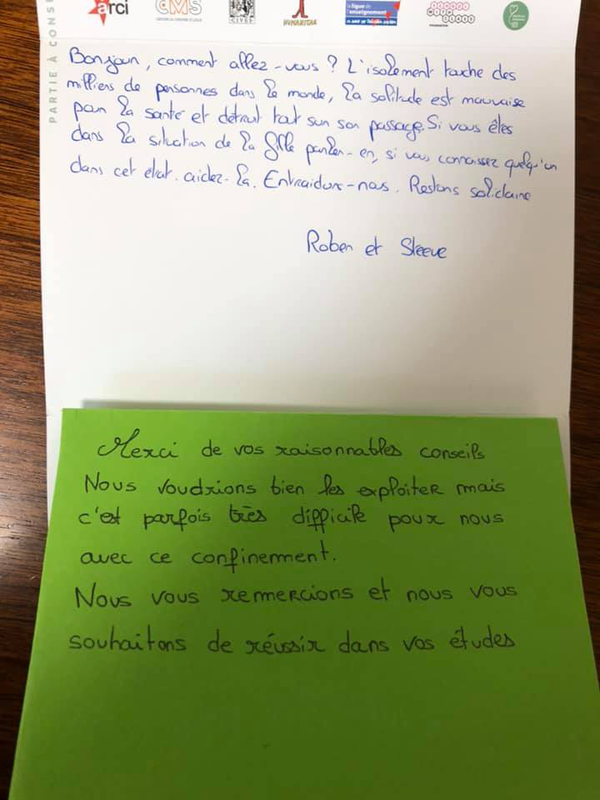 PARTIE À CONSE
arci
CMS
CIVES
HUMANITAR
la ligue de l'enseignement
Bonjour, comment allez-vous ? L'isolement touche des
milliers de personnes dans le monde, la solitude est mauvaise
pour la santé et détruit tout sur son passage. Si vous êtes
dans la situation de la fille parlez-en, si vous connaissez quelqu'un
dans cet état. aidez-la. Entraidons-nous. Restons solidaire
Roben et Steeve
Merci de vos raisonnables conseils
Nous voudrions bien les exploiter mais
c'est parfois très difficile pour nous
avec ce confinement.
Nous vous remercions et nous vous
souhaitons de réussir dans vos études